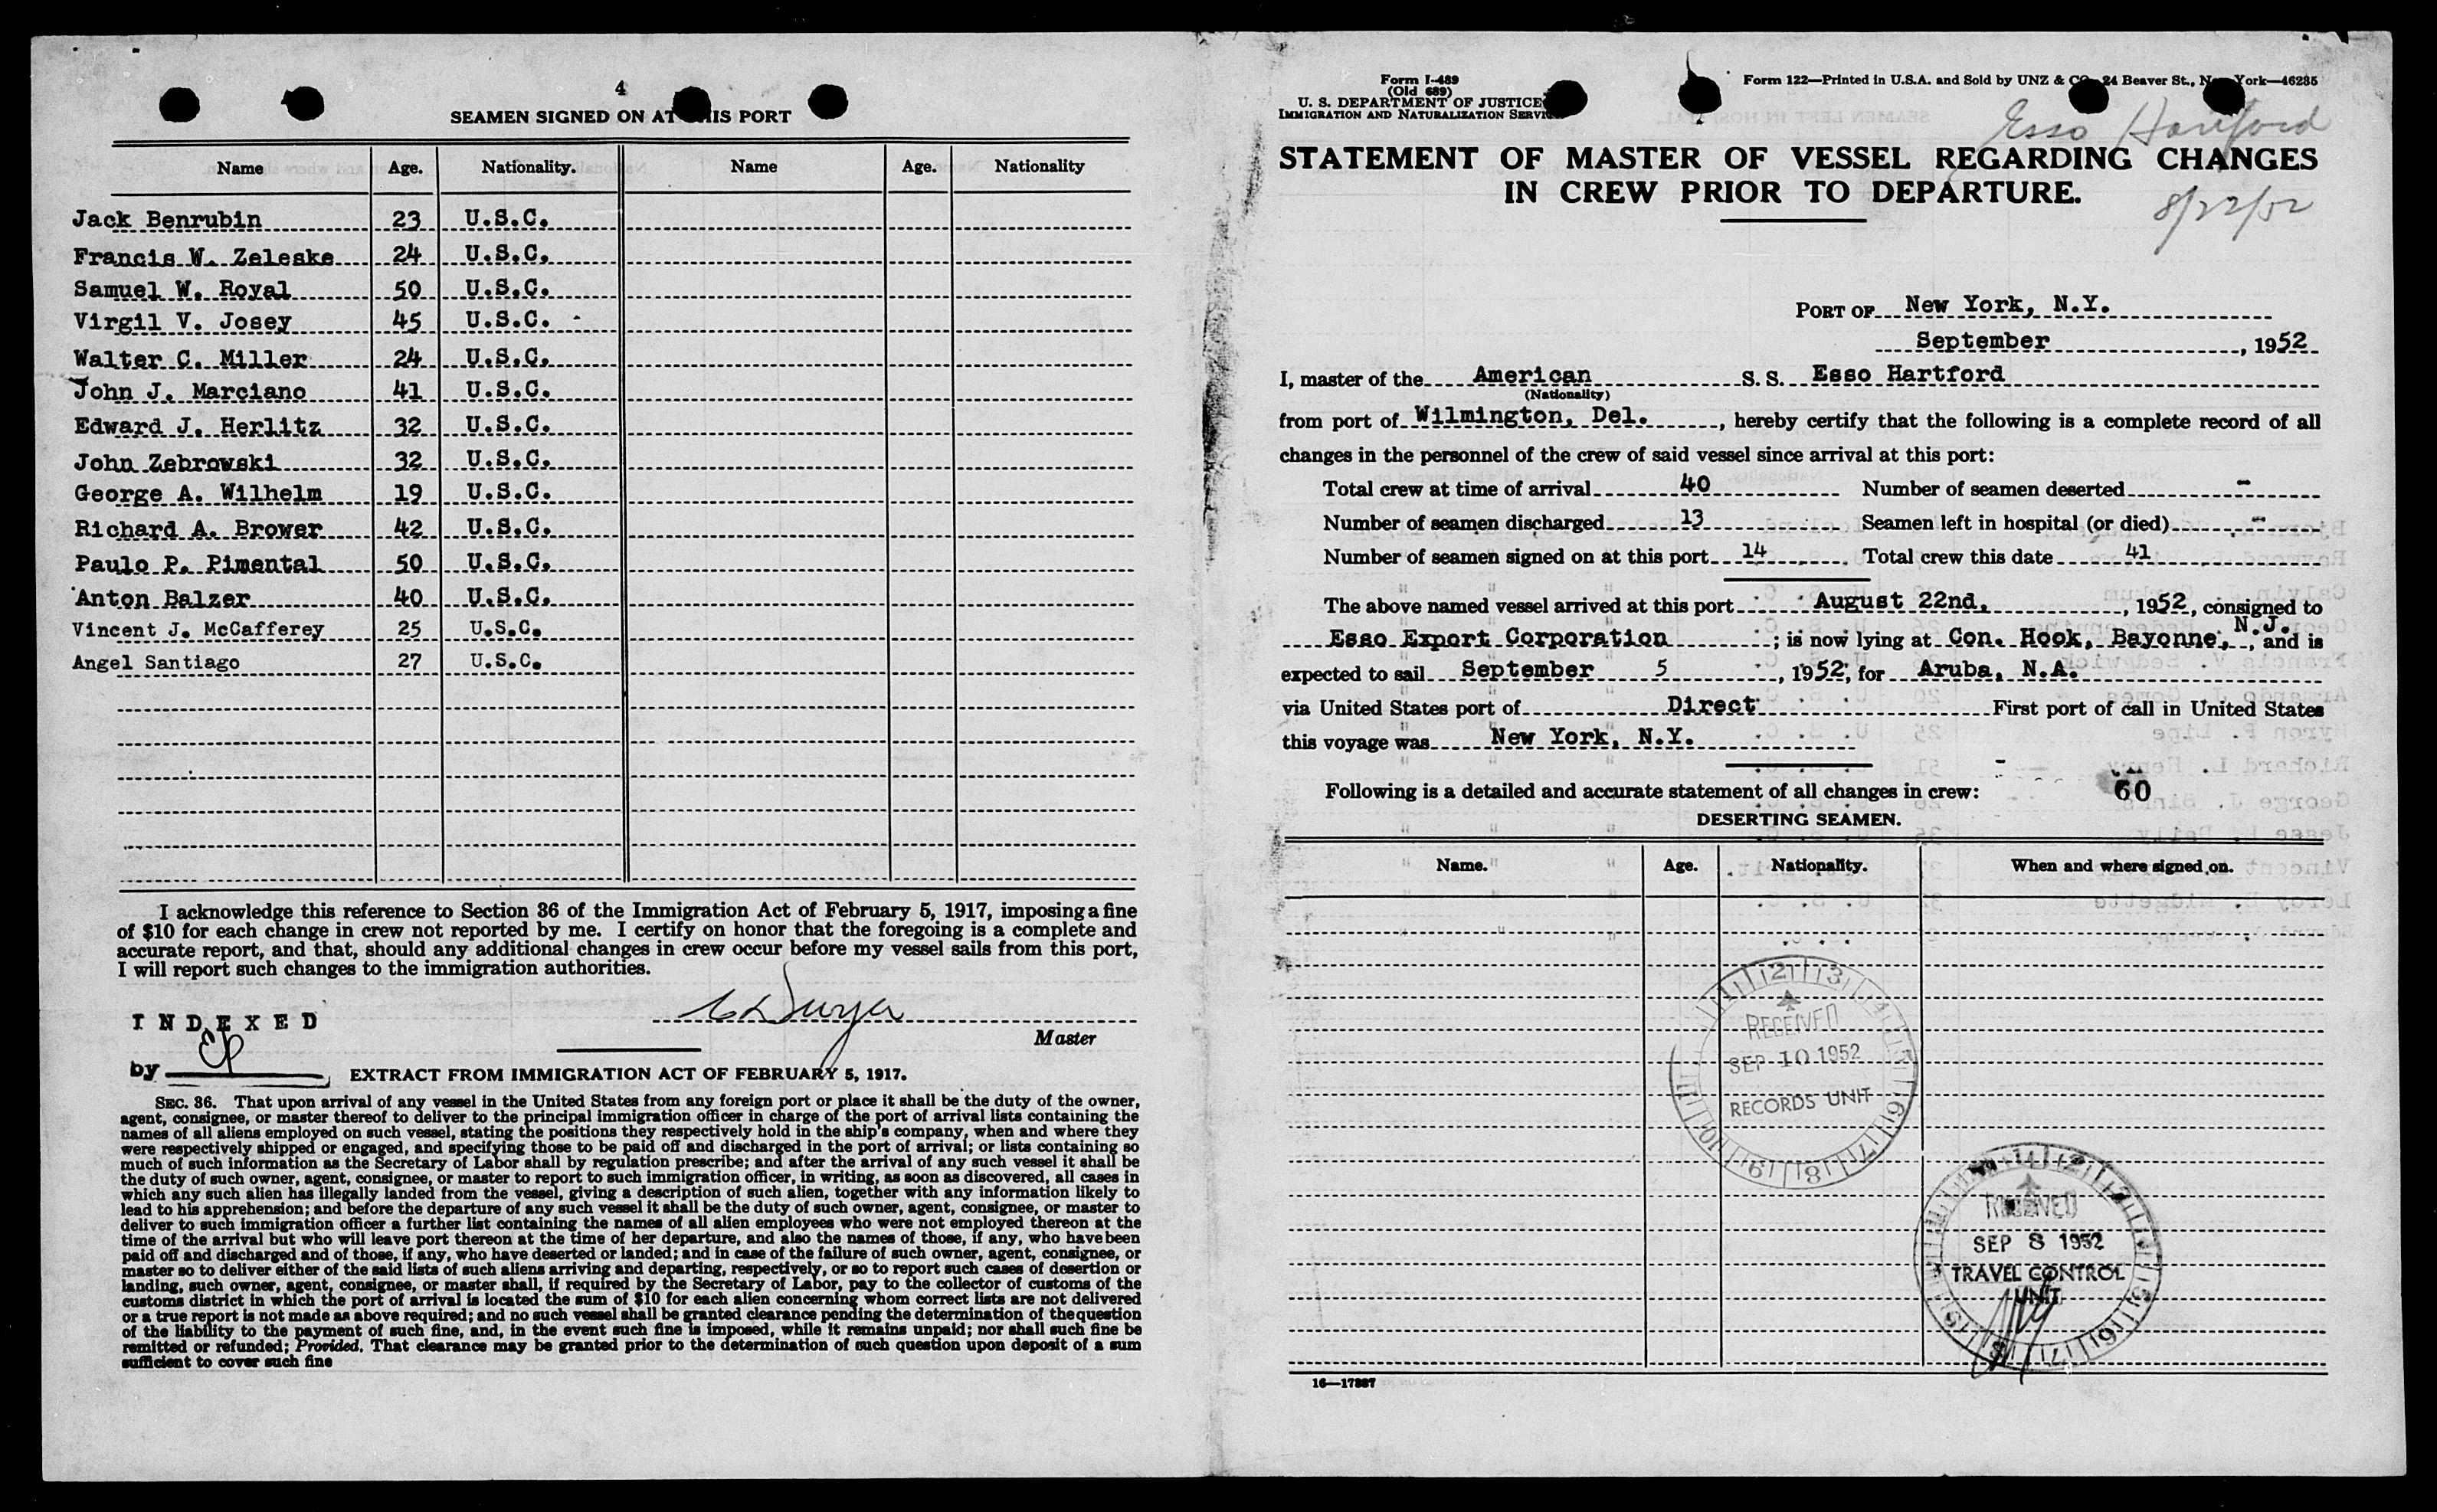 4
SEAMEN SIGNED ON AT THIS PORT
Name Age. Nationality. Name Age. Nationality
Jack Benrubin 23 U.S.C.
Francis W. Zeleske 24 U.S.C.
Samuel W. Royal 50 U.S.C.
Virgil V. Josey 45 U.S.C.
Walter C. Miller 24 U.S.C.
John J. Marciano 41 U.S.C.
Edward J. Herlitz 32 U.S.C.
John Zebrowski 32 U.S.C.
George A. Wilhelm 19 U.S.C.
Richard A. Brower 42 U.S.C.
Paulo P. Pimental 50 U.S.C.
Anton Balzer 40 U.S.C.
Vincent J. McCafferey 25 U.S.C.
Angel Santiago 27 U.S.C.
I acknowledge this reference to Section 36 of the Immigration Act of February 5, 1917, imposing a fine
of $10 for each change in crew not reported by me. I certify on honor that the foregoing is a complete and
accurate report, and that, should any additional changes in crew occur before my vessel sails from this port,
I will report such changes to the immigration authorities.
INDEXED
Master
by
EXTRACT FROM IMMIGRATION ACT OF FEBRUARY 5, 1917.
SEC. 36. That upon arrival of any vessel in the United States from any foreign port or place it shall be the duty of the owner,
agent, consignee, or master thereof to deliver to the principal immigration officer in charge of the port of arrival lists containing the
names of all aliens employed on such vessel, stating the positions they respectively hold in the ship's company, when and where they
were respectively shipped or engaged, and specifying those to be paid off and discharged in the port of arrival; or lists containing so
much of such information as the Secretary of Labor shall by regulation prescribe; and after the arrival of any such vessel it shall be
the duty of such owner, agent, consignee, or master to report to such immigration officer, in writing, as soon as discovered, all cases in
which any such alien has illegally landed from the vessel, giving a description of such alien, together with any information likely to
lead to his apprehension; and before the departure of any such vessel it shall be the duty of such owner, agent, consignee, or master to
deliver to such immigration officer a further list containing the names of all alien employees who were not employed thereon at the
time of the arrival but who will leave port thereon at the time of her departure, and also the names of those, if any, who have been
paid off and discharged and of those, if any, who have deserted or landed; and in case of the failure of such owner, agent, consignee, or
master so to deliver either of the said lists of such aliens arriving and departing, respectively, or so to report such cases of desertion or
landing, such owner, agent, consignee, or master shall, if required by the Secretary of Labor, pay to the collector of customs of the
customs district in which the port of arrival is located the sum of $10 for each alien concerning whom correct lists are not delivered
or a true report is not made as above required; and no such vessel shall be granted clearance pending the determination of the question
of the liability to the payment of such fine, and, in the event such fine is imposed, while it remains unpaid; nor shall such fine be
remitted or refunded; Provided, That clearance may be granted prior to the determination of such question upon deposit of a sum
sufficient to cover such fine
Form I-489
(Old 689)
U. S. DEPARTMENT OF JUSTICE
IMMIGRATION AND NATURALIZATION SERVICE
Form 122—Printed in U.S.A. and Sold by UNZ & CO., 24 Beaver St., New York—46235
Esso Hartford
STATEMENT OF MASTER OF VESSEL REGARDING CHANGES
IN CREW PRIOR TO DEPARTURE.
8/22/52
PORT OF New York, N.Y.
September, 1952
I, master of the American S. S. Esso Hartford
(Nationality)
from port of Wilmington, Del., hereby certify that the following is a complete record of all
changes in the personnel of the crew of said vessel since arrival at this port:
Total crew at time of arrival 40 Number of seamen deserted -
Number of seamen discharged 13 Seamen left in hospital (or died) -
Number of seamen signed on at this port 14 Total crew this date 41
The above named vessel arrived at this port August 22nd, 1952, consigned to
Esso Export Corporation; is now lying at Con. Hook, Bayonne, N.J., and is
expected to sail September 5, 1952, for Aruba, N.A.
via United States port of Direct First port of call in United States
this voyage was New York, N.Y.
Following is a detailed and accurate statement of all changes in crew: 60
DESERTING SEAMEN.
Name. Age. Nationality. When and where signed on.
RECEIVED
SEP 10 1952
RECORDS UNIT
RECEIVED
SEP 8 1952
TRAVEL CONTROL
UNIT
16—17887